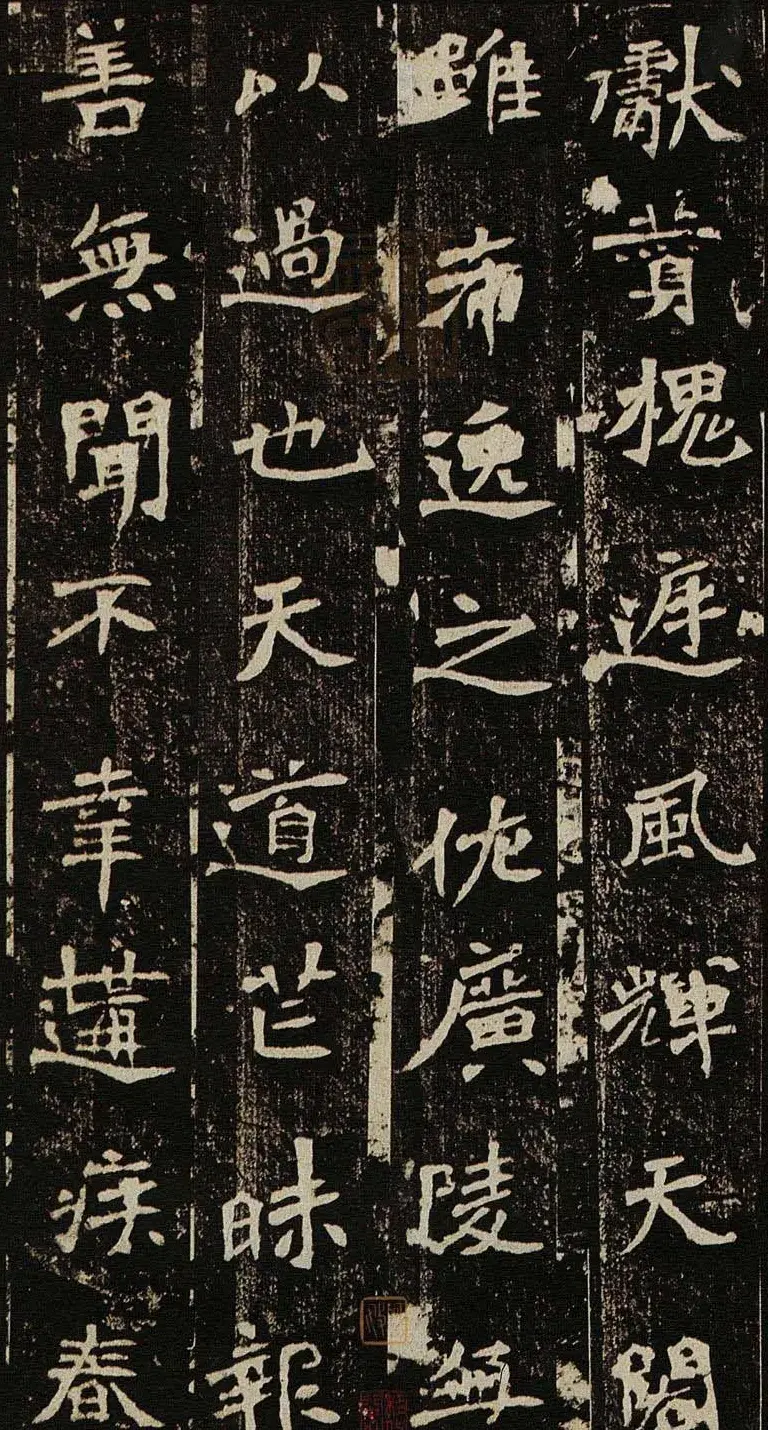 獻賛槐庭風輝天閣
雖逸之廣陵無
以過也天道芒昧報
善無聞不幸遘疾春